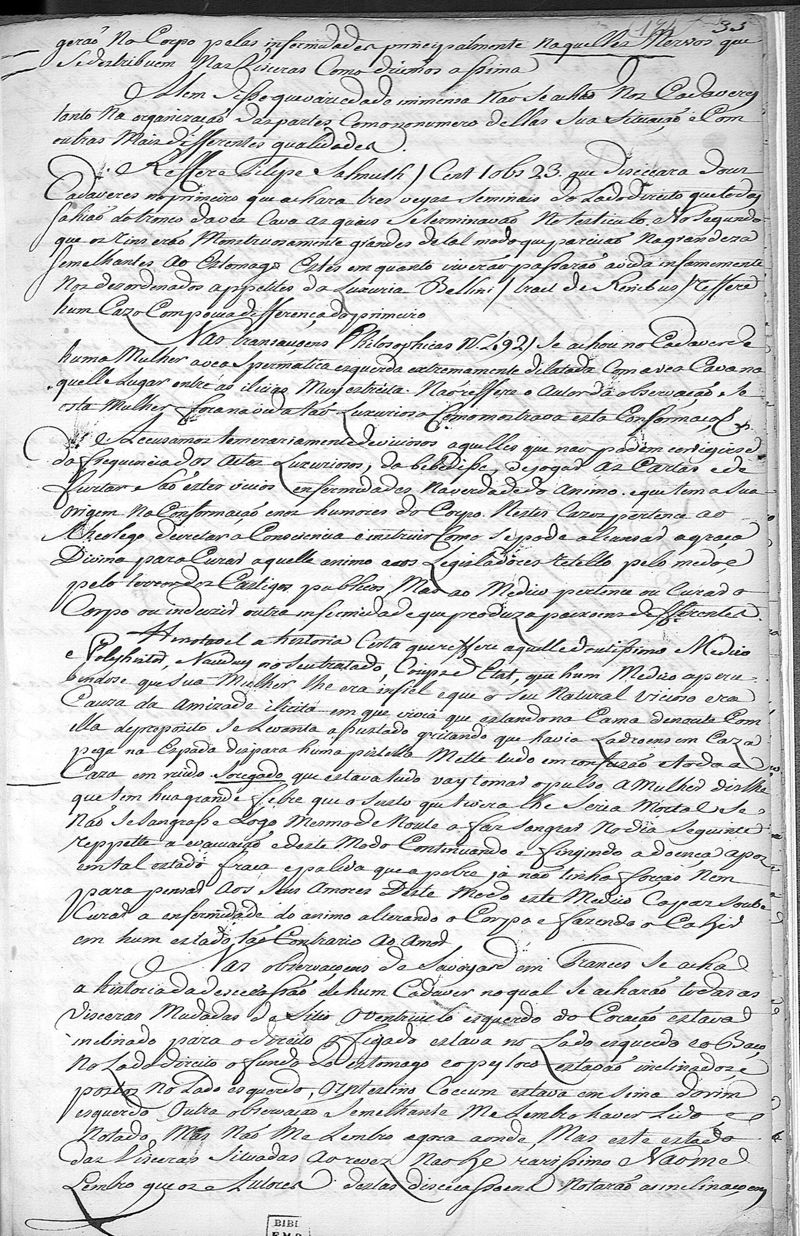 33
gerão No Corpo pelas infermidades principalmente naquelles Nervos que
Se destribuem Nas Visceras Como dicemos assima
Alem disso que variedade immensa Não Se achão Nos Cadaveres
tanto Na organização das partes Como no numero dellas Sua Situação e Com
outras Mais differentes qualidades
Reffere Filipe Salmuth / Cent 1 obs 23. que disecara dous
Cadaveres no primeiro que achara tres vezas Seminais do Lado direito que todas
sahião do tronco da vea Cava as quais Se terminavão No testiculo e No Segundo
que os rins erão Monstruosamente grandes de tal modo que parecião Na grandeza
Semelhantes ao Estomago Estes em quanto viverão passarão a vida infamemente
Nos desordenados appetites da Luxuria Bellini / de Renibus / reffere
hum Cazo Com pouca differença do primeiro
Nas transaçoens Philosophicas Se achou no Cadaver de
huma Mulher a vea Spermatica esquerda extremamente dilatada Com a vea Cava na
quelle Lugar entre as iliacas Muy estreita. Não reffere o Autor da observação Se
esta Mulher fora na vida tão Luxuriosa Como mostrava esta Conformação
Accusamos temerariamente de viciosos aquelles que não podem corrigirse
da frequencia dos Actos Luxuriosos, da bebedisse, de jogar as Cartas e de
furtar São estes vicios enfermidades na verdade do animo. e que tem a Sua
origem Na Conformação e nos humores do Corpo. Nestes Cazos pertence ao
theologo decretar a Consciencia e instruir Como Se pode alcansar a graça
Divina para Curar aquelle animo e aos Legisladores pelo medo e
pelo terror dos Castigos publicos, Mas ao Medico pertence ou Curar o
Corpo ou induzir outra infermidade que produza paixoens differentes.
He notavel a historia Certa que reffere aquelle doutissimo Medico
e Polyhistor, Naudeus no seu tratado, Coups d Etat, que hum Medico aperce-
bendose que Sua Mulher lhe era infiel e que o Seu Natural vicioso era
Cauza da amizade ilicita em que vivia que estando na Cama de noute Com
ella de proposito Se Levanta assustado gritando que havia Ladroens em Caza
pega na Espada dispara huma pistolla Mette tudo em confuzão e toda a
Caza em ruido Socegado que estava tudo vay tomar o pulso a Mulher dislhe
que tem hua grande febre que o Susto que tivera lhe Seria Mortal Se
Não Se sangrasse Logo Mesmo de Noute a faz Sangrar No dia Seguinte
reppette a evacuação e deste Modo Continuando e fingindo a doença a pos
em tal estado fraca e palida que a pobre já não tinha forças Nem
para pensar Aos Seus Amores Deste Modo este Medico Caspar Soube
Curar a enfermidade do animo alterando o Corpo e fazendo o Cahir
em hum estado tão Contrario Ao Amor
Nas observaçoens de Savoyard em Frances Se acha
a historia da dissecassão de hum Cadaver no qual Se acharão todas as
Visceras Mudadas do Sitio O ventriculo esquerdo do Coração estava
inclinado para o direito o figado estava no Lado esquerdo e o Baço
No Lado direito o fundo do estomago e o pyloro estavão inclinados e
postos No Lado esquerdo, o intestino Coecum estava em Sima do rim
esquerdo Outra observação Semelhante Me Lembro haver Lido e
Notado, Mas Não Me Lembro agora aonde, Mas este estado
das Visceras Situadas ao revez Não he rarissimo Não me
Lembro que os Autores destas dissecassoens Notarão as inclinaçoens
BIBI